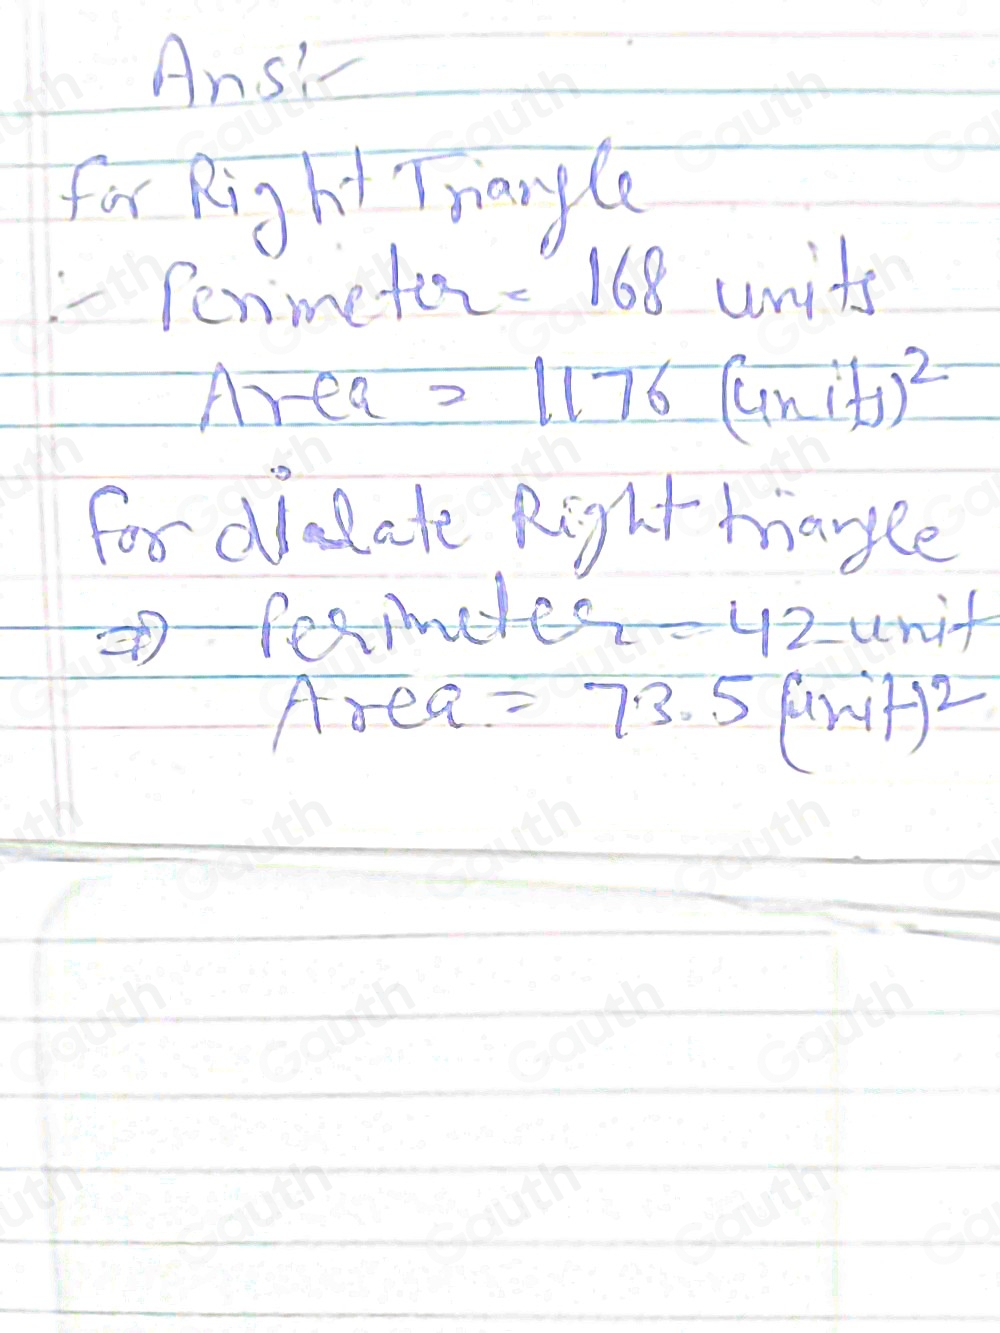 Ans:-
for Right Triangle
:- Perimeter = 168 units
Area = 1176 (units)²
for dialate Right triangle
⇒ Perimeter = 42 unit
Area = 73.5 (unit)²